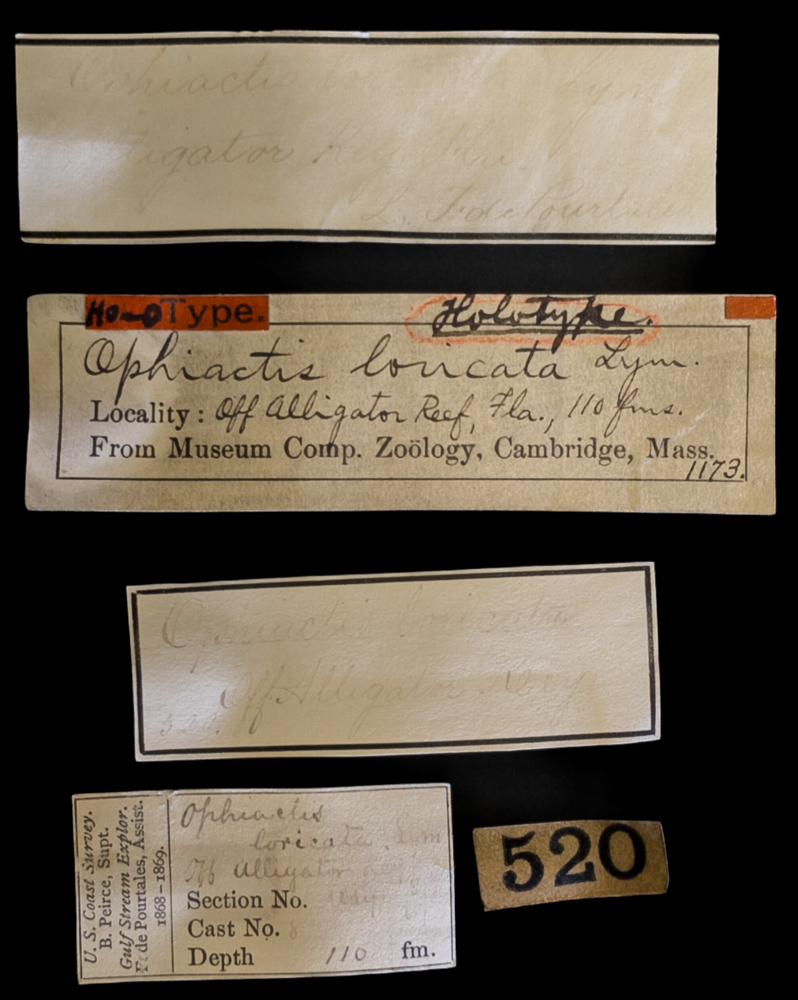 Ophiactis Lym
Alligator Key Fla.
L. F. de Pourtales
Holo Type. Holotype.
Ophiactis loricata Lym.
Locality: Off Alligator Reef, Fla., 110 fms.
From Museum Comp. Zoölogy, Cambridge, Mass.
1173.
Ophiactis loricata
Off Alligator Key
U. S. Coast Survey.
B. Peirce, Supt.
Gulf Stream Explor.
F. de Pourtales, Assist.
1868-1869.
Ophiactis
loricata. Lym
Off Alligator
Section No.
Cast No. 8
Depth 110 fm.
520